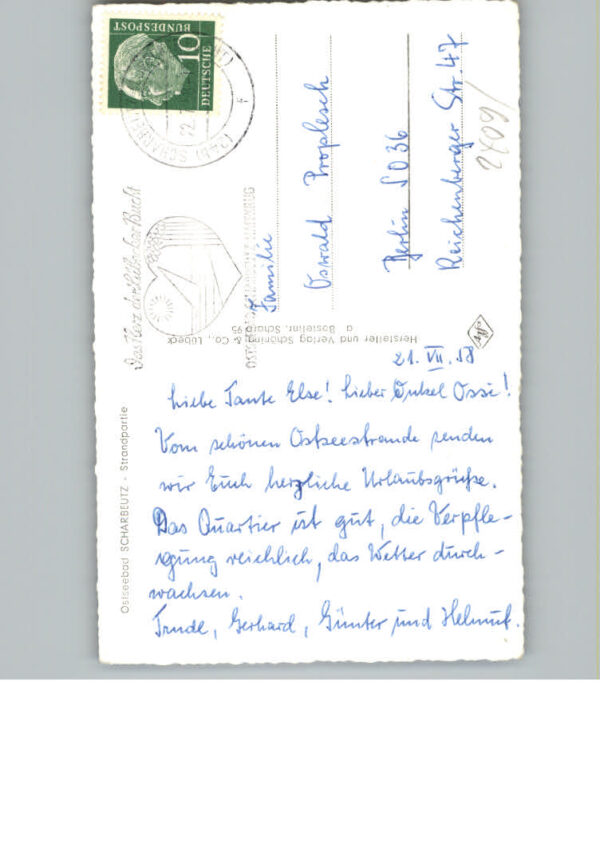 DEUTSCHE
BUNDESPOST
10
SCHARBEUTZ
22.
Das Herz der Lübecker Bucht
Familie
Oswald Proplesch
Berlin SO 36
Reichenberger Str. 47
2409/
Hersteller und Verlag Schöning & Co., Lübeck
Bestellnr. Scharb 95
Ostseebad SCHARBEUTZ - Strandpartie
21. VII. 58
Liebe Tante Else! Lieber Onkel Ossi!
Vom schönen Ostseestrande senden
wir Euch herzliche Urlaubsgrüße.
Das Quartier ist gut, die Verpfle-
gung reichlich, das Wetter durch-
wachsen.
Trude, Gerhard, Günter und Helmut.